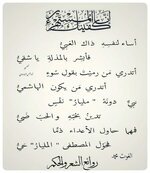 أساء لنفسه ذاك الغبيُّ
فأبشر بالمذلة يا شقيُّ
أتدري مَن رَميتَ بقولِ سوءٍ
أتدري مَن يكون الهاشميُّ
نبيٌّ دونهُ " مليارُ " نفسٍ
تدينُ بحبّهِ و الحبُّ ضيُّ
فمهما حاول الأعداءُ ذمّاً
فحولَ المصطفى " المليارُ " حيُّ
روائع الشعر والحكم